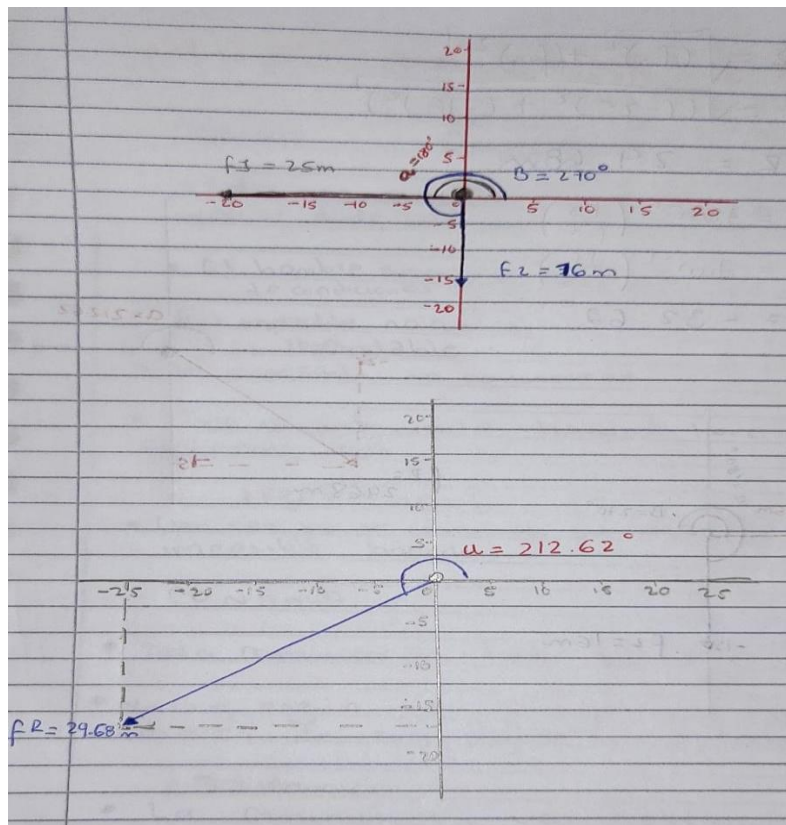 20
15
10
5
f1 = 25m
α = 180°
B = 270°
-20 -15 -10 -5 0 5 10 15 20
-5
-10
-15
f2 = 16m
-20
20
15
10
5
u = 212.62°
-25 -20 -15 -10 -5 0 5 10 15 20 25
-5
-10
-15
fR = 29.68m
-20